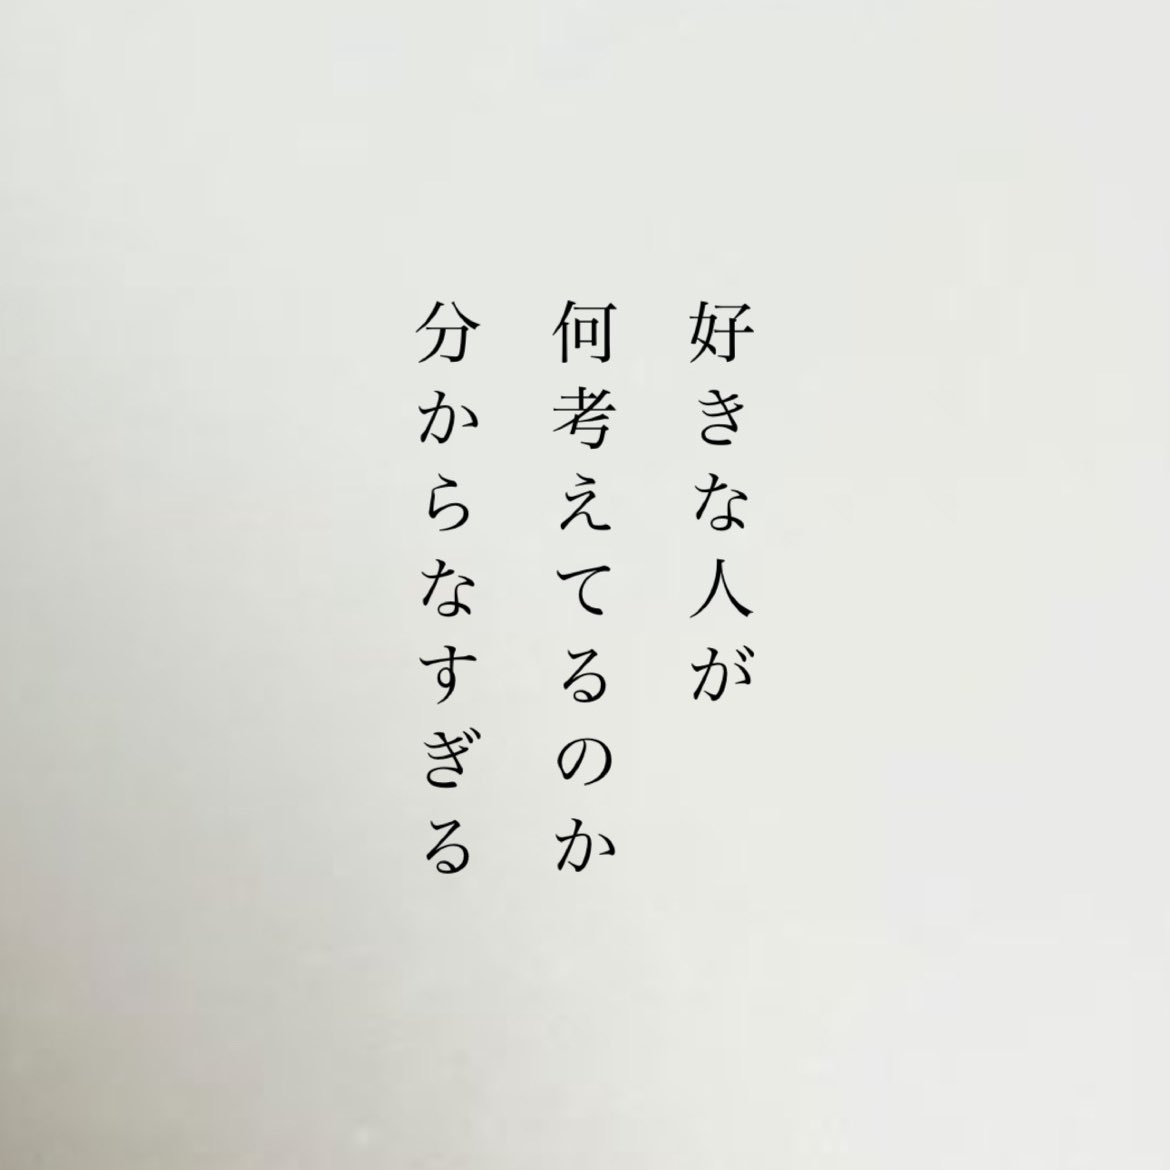 好きな人が
何考えてるのか
分からなすぎる